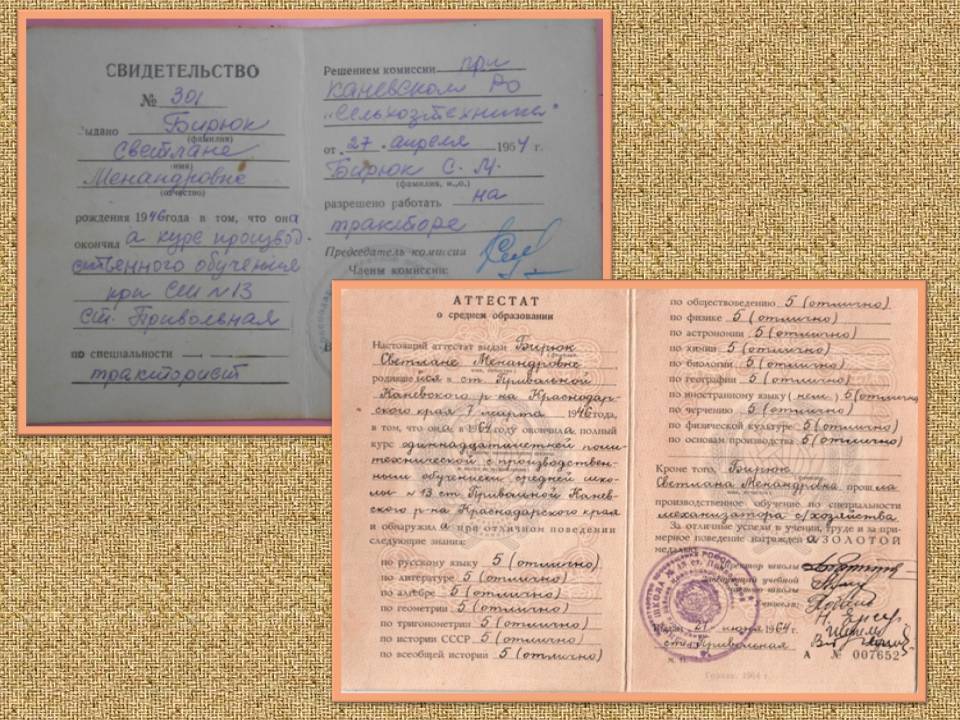 СВИДЕТЕЛЬСТВО
№ 301
Выдано Бирюк
(фамилия)
Светлане
(имя)
Менандровне
(отчество)
рождения 1946 года в том, что она
окончила курс производ-
ственного обучения
при СШ №13
ст. Привольная
по специальности
тракторист
Решением комиссии при
Каневском РО
"Сельхозтехника"
от "27" апреля 1964 г.
Бирюк С. М.
(фамилия, и., о.)
разрешено работать на
тракторе
Председатель комиссии
Члены комиссии:
АТТЕСТАТ
о среднем образовании
Настоящий аттестат выдан Бирюк
Светлане Менандровне
родившейся в ст. Привольной
Каневского р-на Краснодар-
ского края 7 марта 1946 года,
в том, что она в 1964 году окончила полный
курс одиннадцатилетней поли-
технической с производствен-
ным обучением средней шко-
лы №13 ст. Привольной Канев-
ского р-на Краснодарского края
и обнаружила при отличном поведении
следующие знания:
по русскому языку 5 (отлично)
по литературе 5 (отлично)
по алгебре 5 (отлично)
по геометрии 5 (отлично)
по тригонометрии 5 (отлично)
по истории СССР 5 (отлично)
по всеобщей истории 5 (отлично)
по обществоведению 5 (отлично)
по физике 5 (отлично)
по астрономии 5 (отлично)
по химии 5 (отлично)
по биологии 5 (отлично)
по географии 5 (отлично)
по иностранному языку (нем.) 5 (отлично)
по черчению 5 (отлично)
по физической культуре 5 (отлично)
по основам производства 5 (отлично)
Кроме того, Бирюк
Светлана Менандровна прошла
производственное обучение по специальности
механизатора с/хозяйства
За отличные успехи в учении, труде и за при-
мерное поведение награждена ЗОЛОТОЙ
медалью.
Директор школы
учебной
Учителя:
Выдан 21 июня 1964 г.
ст. Привольная
М. П.
А № 007652
Гознак. 1964 г.